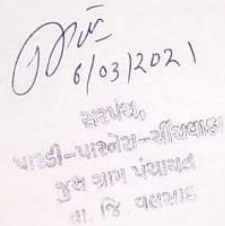 6/03/2021
સરપંચ,
પારડી-પારનેરા-સીંચવાડા
જુથ ગ્રામ પંચાયત
તા. જિ. વલસાડ